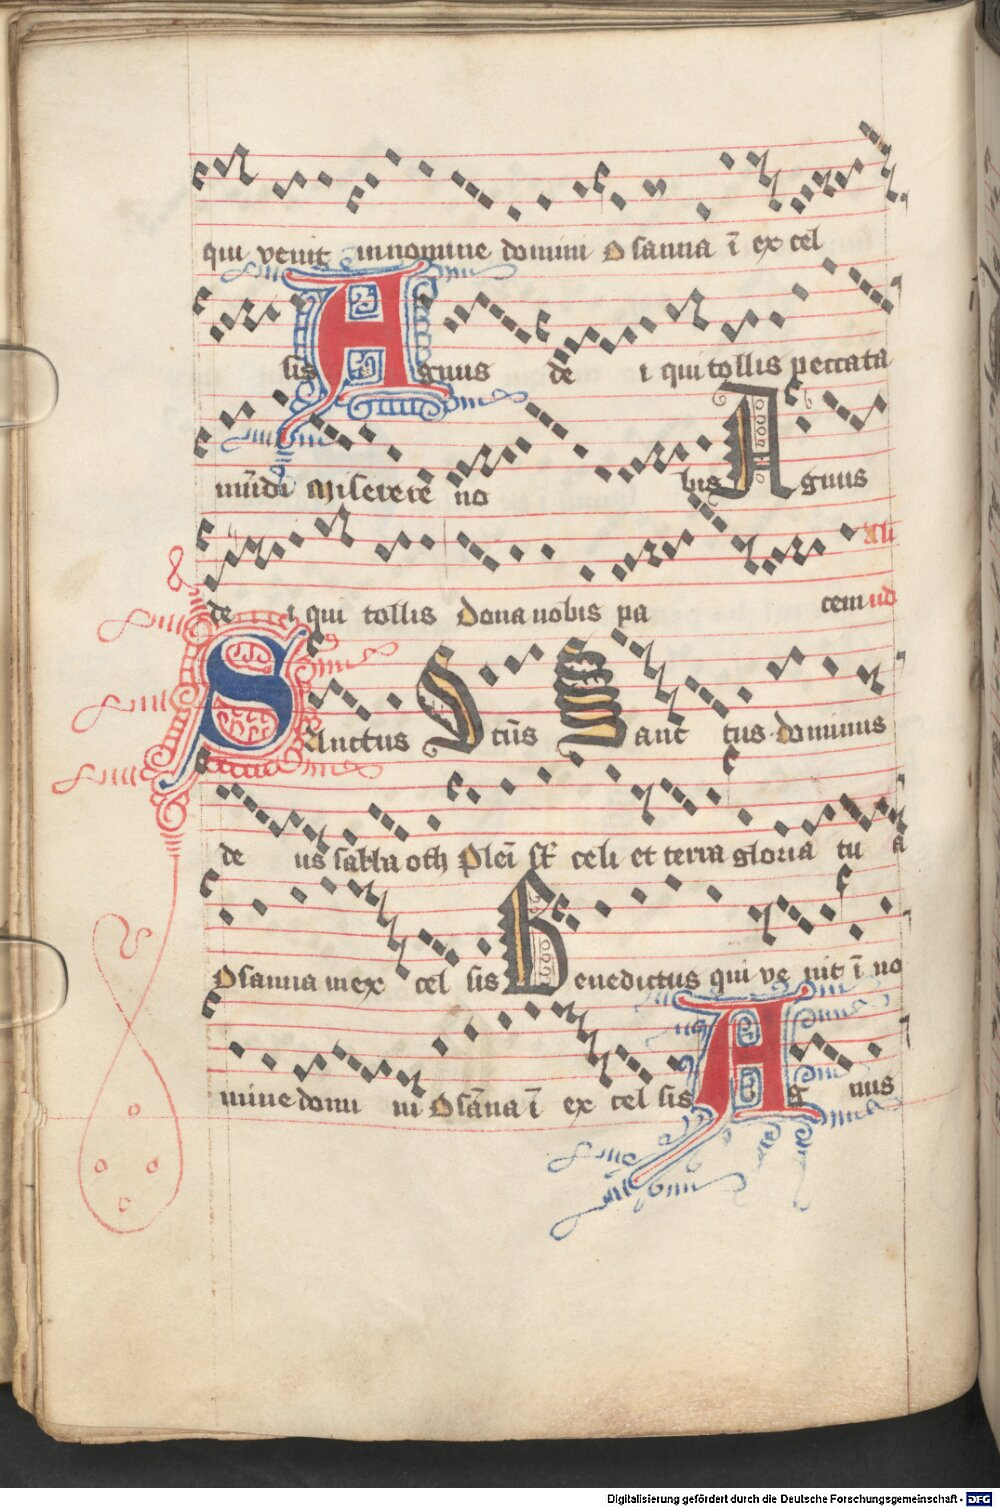 qui venit in nomine domini Osanna ī ex cel
sis Agnus de i qui tollis peccata
mūdi Miserere no bis Agnus
Ali
de i qui tollis dona nobis pa cem ud
Sanctus Sctūs Sanc tus dominus
de us sabba oth Pleī sť celi et terra gloria tu a
Osanna in ex cel sis Benedictus qui ve nit ī no
mine domi ni Osāna ī ex cel sis Ag nus
Digitalisierung gefördert durch die Deutsche Forschungsgemeinschaft - DFG